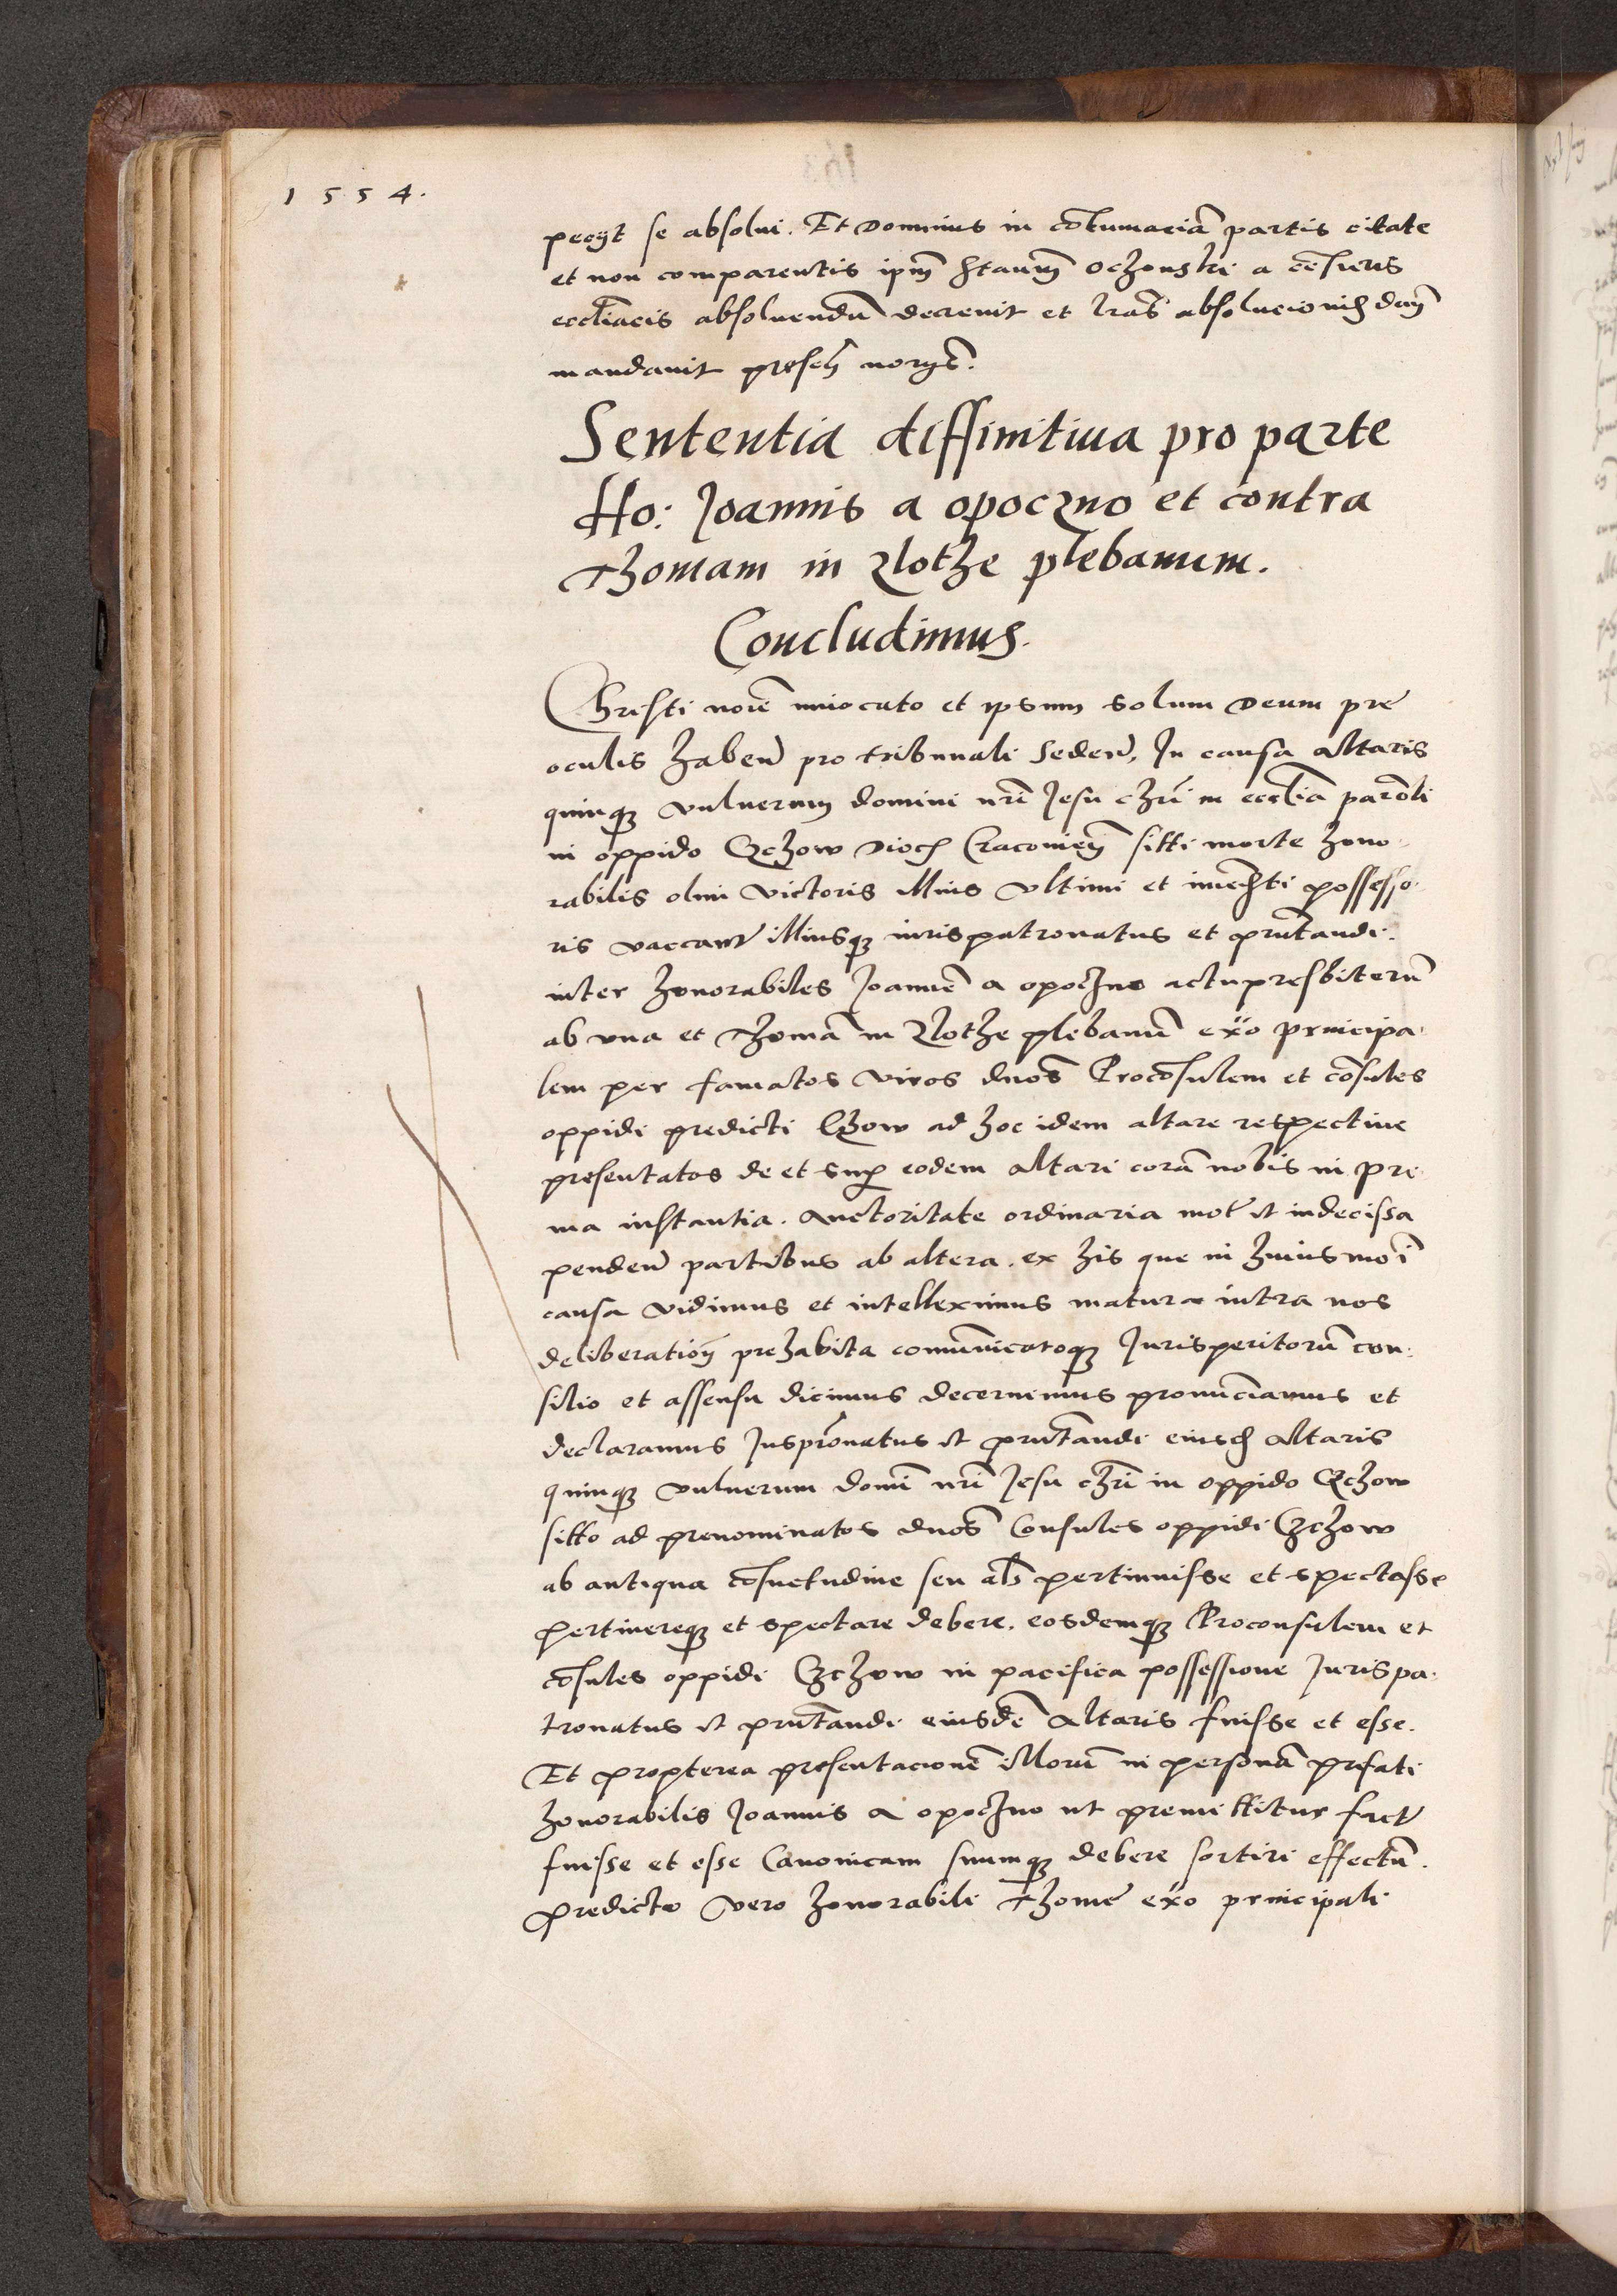 1554.
pecyt se absolui. Et Dominus in cõtumaciã partis citate
et non comparentis ipm̃ Staũm Oczouski a cẽsuris
eccl̃iacis absoluendũ decreuit et l̃ras absolucionis dari
mandauit presen̄ noryc̃.
Sententia diffinitiua pro parte
Ho: Joannis a opoczno et contra
Thomam in Zlothe plebanum.
Concludimus.
Christi noiẽ inuocato et ipsum solum Deum pre
oculis haben̄ pro tribunali Seden̄. In causa altaris
quinqz vulnerum domini nr̃i Jesu chr̃i in eccl̃ia parõli
in oppido Czchow Dioc̄ Cracouien̄ sitti morte hono-
rabilis olim victoris illius vltimi et immediati possesso-
ris vaccan̄ illiusqz iurispatronatus et pñtandi.
inter honorabiles Joannẽ a opoczno actu presbiterũ
ab vna et Thomã in Zlothe plebanũ ex̃o principa-
lem per famatos viros dños Procõsulem et cõsules
oppidi predicti Czchow ad hoc idem altare respectiue
presentatos de et sup̱ eodem altari corã nobis in pri-
ma instantia. auctoritate ordinaria mot̃ et indecissa
penden̄ partibus ab altera. ex his que in huiusmõi
causa vidimus et intelleximus matura intra nos
deliberatiõn prehabita comũnicatoqz Jurisperitorũ con-
silio et assensu dicimus decernimus pronũciamus et
declaramus Juspr̃onatus et pñtandi eiusd̄ altaris
quinqz vulnerum domĩ nr̃i Jesu chr̃i in oppido Czchow
sitto ad prenominatos dños Consules oppidi Czchow
ab antiqua cõsuetudine seu al̃s pertinuisse et spectasse
pertinereqz et spectare debere. eosdemqz Proconsulem et
cõsules oppidi Czchow in pacifica possessione Jurispa-
tronatus et pñtandi eiusdẽ altaris fuisse et esse.
Et propterea presentacionẽ illorũ in personã prefati
honorabilis Joannis a opoczno ut premittitur fact̃
fuisse et esse Canonicam suumqz debere sortiri effectũ.
Predicto vero honorabili Thome ex̃o principali